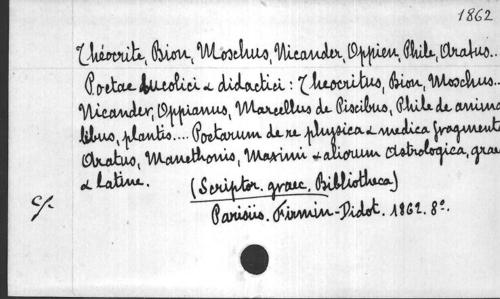 1862
Théocrite, Bion, Moschus, Nicander, Oppien, Phile, Aratus...
Poetae bucolici & didactici: Theocritus, Bion, Moschus...
Nicander, Oppianus, Marcellus de Piscibus, Phile de anima
libus, plantis.... Poetarum de re physica & medica fragment
Aratus, Manethonis, Maximi & aliorum Astrologica, grae
& latine.
(Scriptor. graec. Bibliotheca)
Parisiis. Firmin-Didot. 1862. 8º.